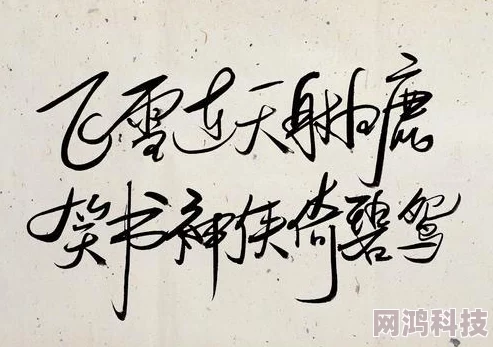 飞雪连天射白鹿
笑书神侠倚碧鸳
网鸿科技